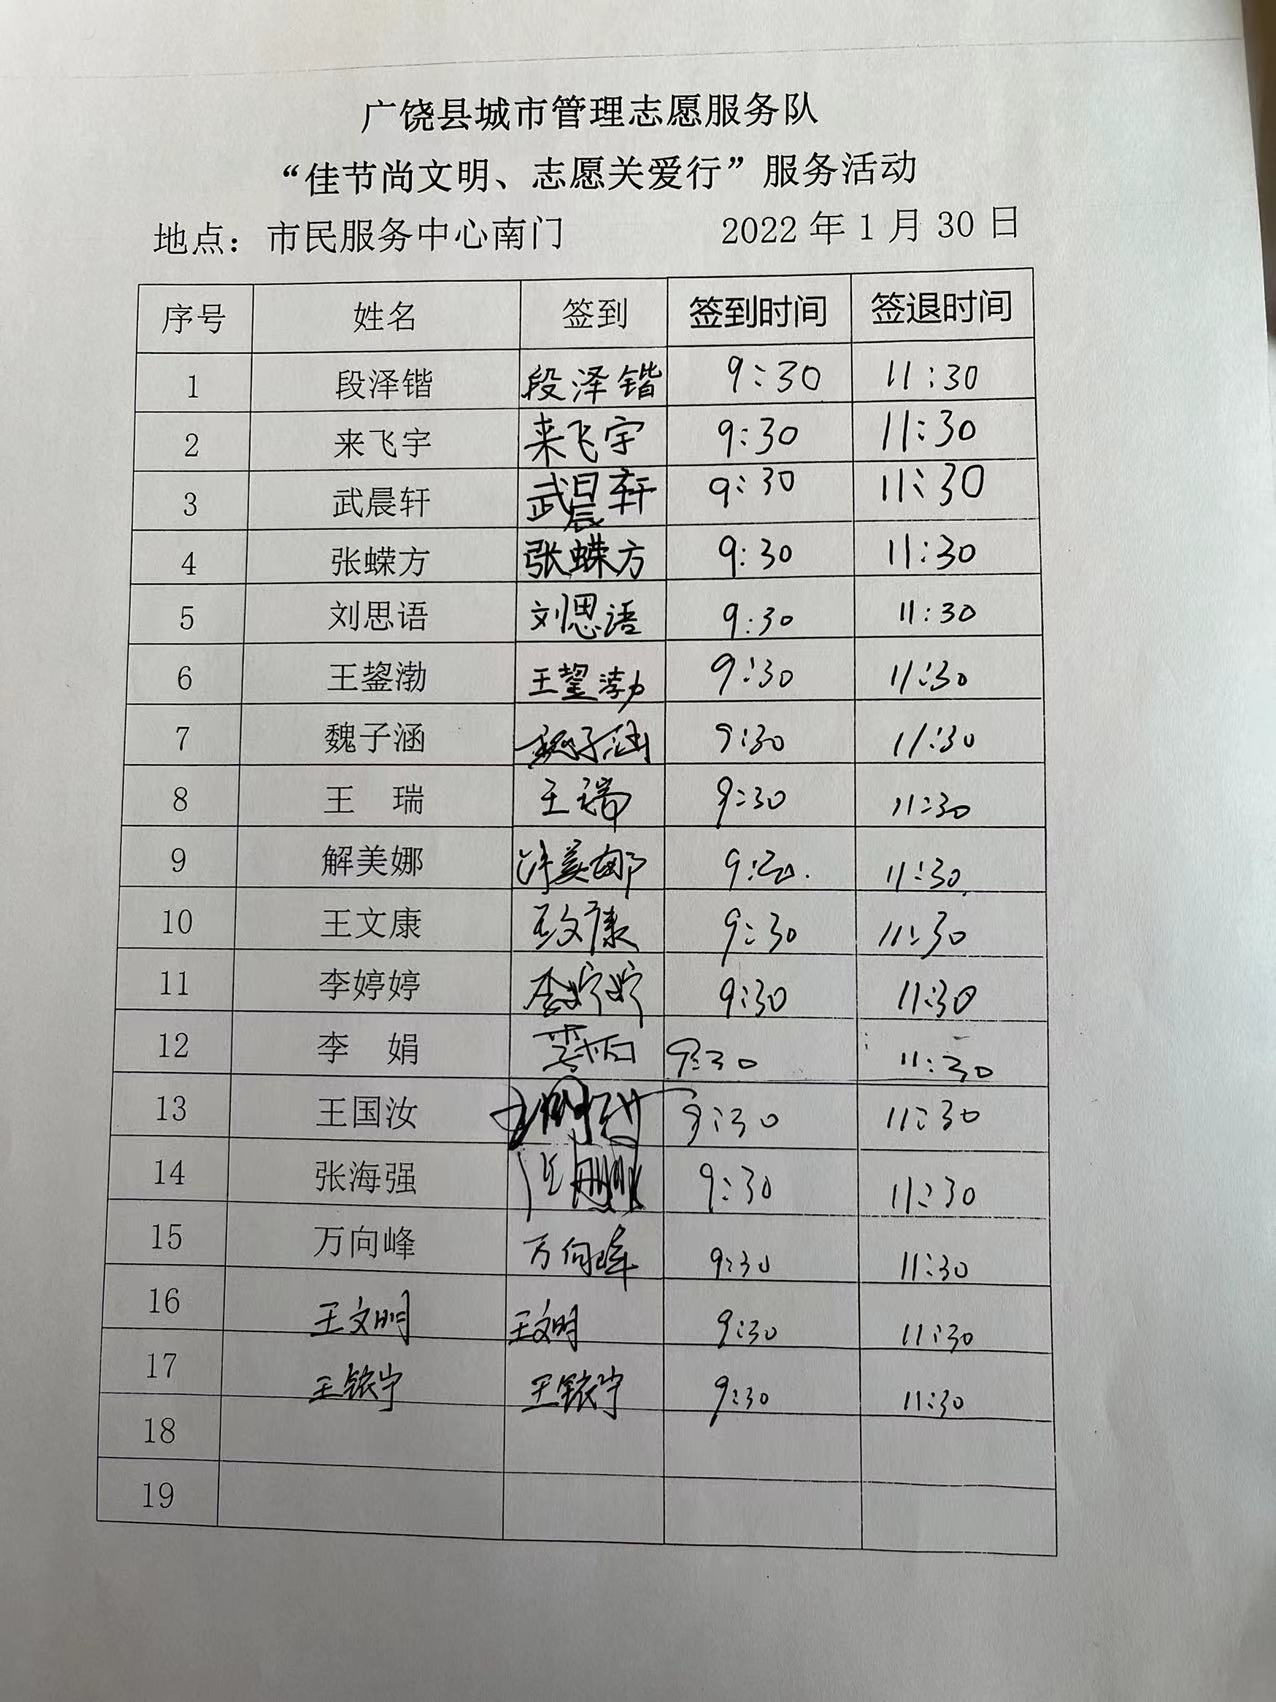 广饶县城市管理志愿服务队
“佳节尚文明、志愿关爱行”服务活动
地点：市民服务中心南门 2022年1月30日
序号 姓名 签到 签到时间 签退时间
1 段泽锴 段泽锴 9:30 11:30
2 来飞宇 来飞宇 9:30 11:30
3 武晨轩 武晨轩 9:30 11:30
4 张蝾方 张蝾方 9:30 11:30
5 刘思语 刘思语 9:30 11:30
6 王鋆渤 9:30 11:30
7 魏子涵 魏子涵 9:30 11:30
8 王 瑞 王瑞 9:30 11:30
9 解美娜 解美娜 11:30
10 王文康 王文康 9:30 11:30
11 李婷婷 李婷婷 9:30 11:30
12 李 娟 9:30 11:30
13 王国汝 9:30 11:30
14 张海强 9:30 11:30
15 万向峰 万向峰 9:30 11:30
16 王文明 王文明 9:30 11:30
17 王铱宁 王铱宁 9:30 11:30
18
19